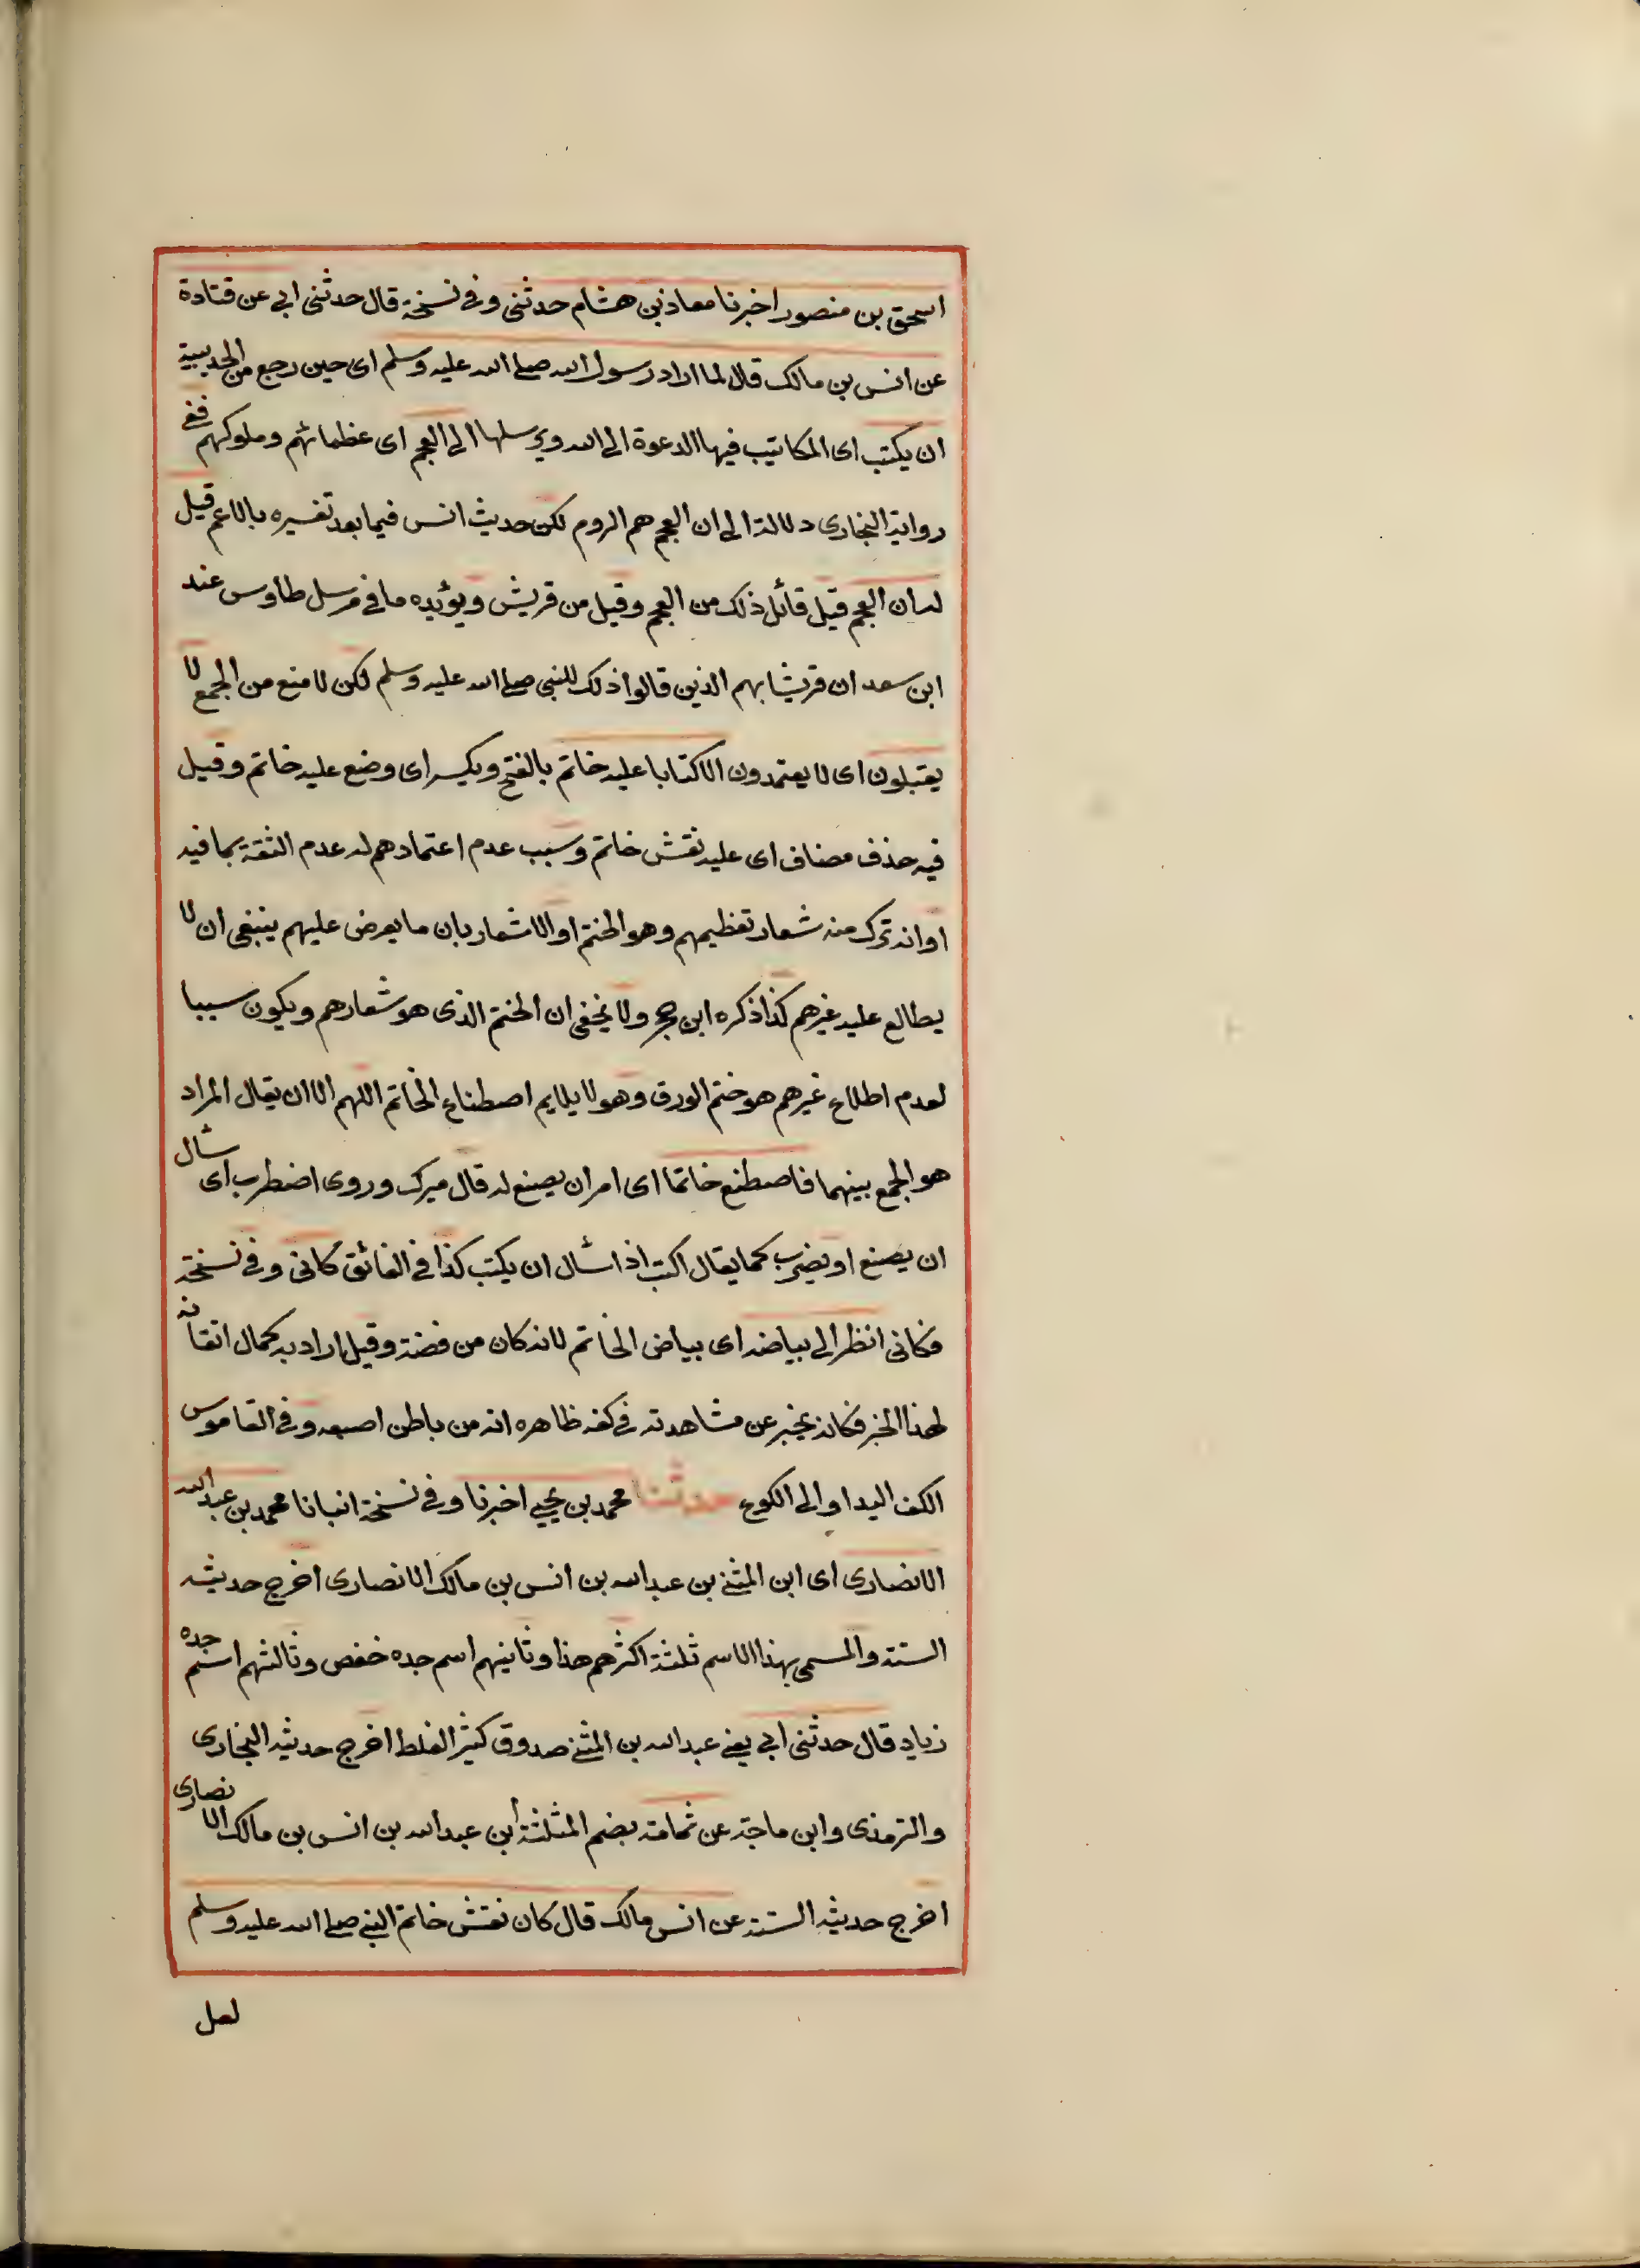 اسحق بن منصور اخبرنا معاذ بن هشام حدثنى وفى نسخة قال حدثنى ابى عن قتادة
عن انس بن مالك قال لما اراد رسول الله صلى الله عليه وسلم اى حين رجع من الحديبية
ان يكتب اى المكاتيب فيها الدعوة الى الله ويرسلها الى العجم اى عظمائهم وملوكهم ففى
رواية البخارى دلالة الى ان العجم هم الروم لكن حديث انس فيما بعد تفسيره بالاعم قيل
له ان العجم قيل قائل ذلك من العجم وقيل من قريش ويؤيده ما فى مرسل طاوس عند
ابن سعد ان قريشا بهم الذين قالوا ذلك للنبى صلى الله عليه وسلم لكن لا منع من الجمع لا
يقبلون اى لا يعتمدون الا كتابا عليه خاتم بالفتح ويكسر اى وضع عليه خاتم وقيل
فيه حذف مضاف اى عليه نقش خاتم وسبب عدم اعتمادهم له عدم الثقة بما فيه
او انه ترك منه شعار تعظيمهم وهو الختم او الاشعار بان ما يعرض عليهم ينبغى ان لا
يطالع عليه غيرهم كذا ذكره ابن حجر ولا يخفى ان الختم الذى هو شعارهم ويكون سببا
لعدم اطلاع غيرهم هو ختم الورق وهو لا يلايم اصطناع الخاتم اللهم الا ان يقال المراد
هو الجمع بينهما فاصطنع خاتما اى امر ان يصنع له قال ميرك وروى اضطرب اى سأل
ان يصنع او يضرب كما يقال اكتب اذا سأل ان يكتب كذا فى الفائق كانى وفى نسخة
فكانى انظر الى بياضه اى بياض الخاتم لانه كان من فضة وقيل اراد به كمال اتقانه
لهذا الخبر فكانه يخبر عن مشاهدته فى كفه ظاهره انه من باطن اصبعه وفى القاموس
الكف اليد او الى الكوع حدثنا محمد بن يحيى اخبرنا وفى نسخة انبانا محمد بن عبد الله
الانصارى اى ابن المثنى بن عبد الله بن انس بن مالك الانصارى اخرج حديثه
الستة والمسمى بهذا الاسم ثلثة اكثرهم هذا وثانيهم اسم جده خفص وثالثهم اسم جده
زياد قال حدثنى ابى يعنى عبد الله بن المثنى صدوق كثير الغلط اخرج حديثه البخارى
والترمذى وابن ماجة عن ثمامة بضم المثلثة ابن عبد الله بن انس بن مالك الانصارى
اخرج حديثه الستة عن انس مالك قال كان نقش خاتم النبى صلى الله عليه وسلم
لعل